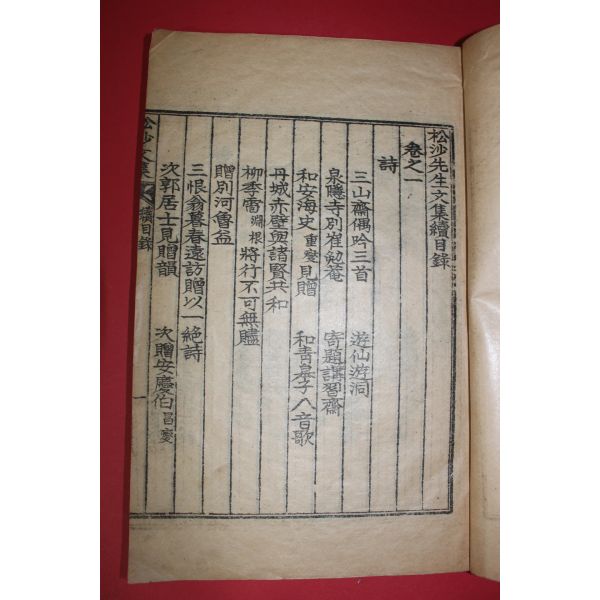 松沙先生文集續目錄
卷之一
詩
三山齋偶吟三首 遊仙遊洞
泉隱寺別崔勉菴 寄題講習齋
和安海史重燮見贈 和靑皐子八音歌
丹城赤壁與諸賢共和
柳季雷淵根將行不可無贐
贈別河魯益
三恨翁暮春遠訪贈以一絶詩
次郭居士見贈韻 次贈安慶伯昌燮
松沙文集 續目錄 一